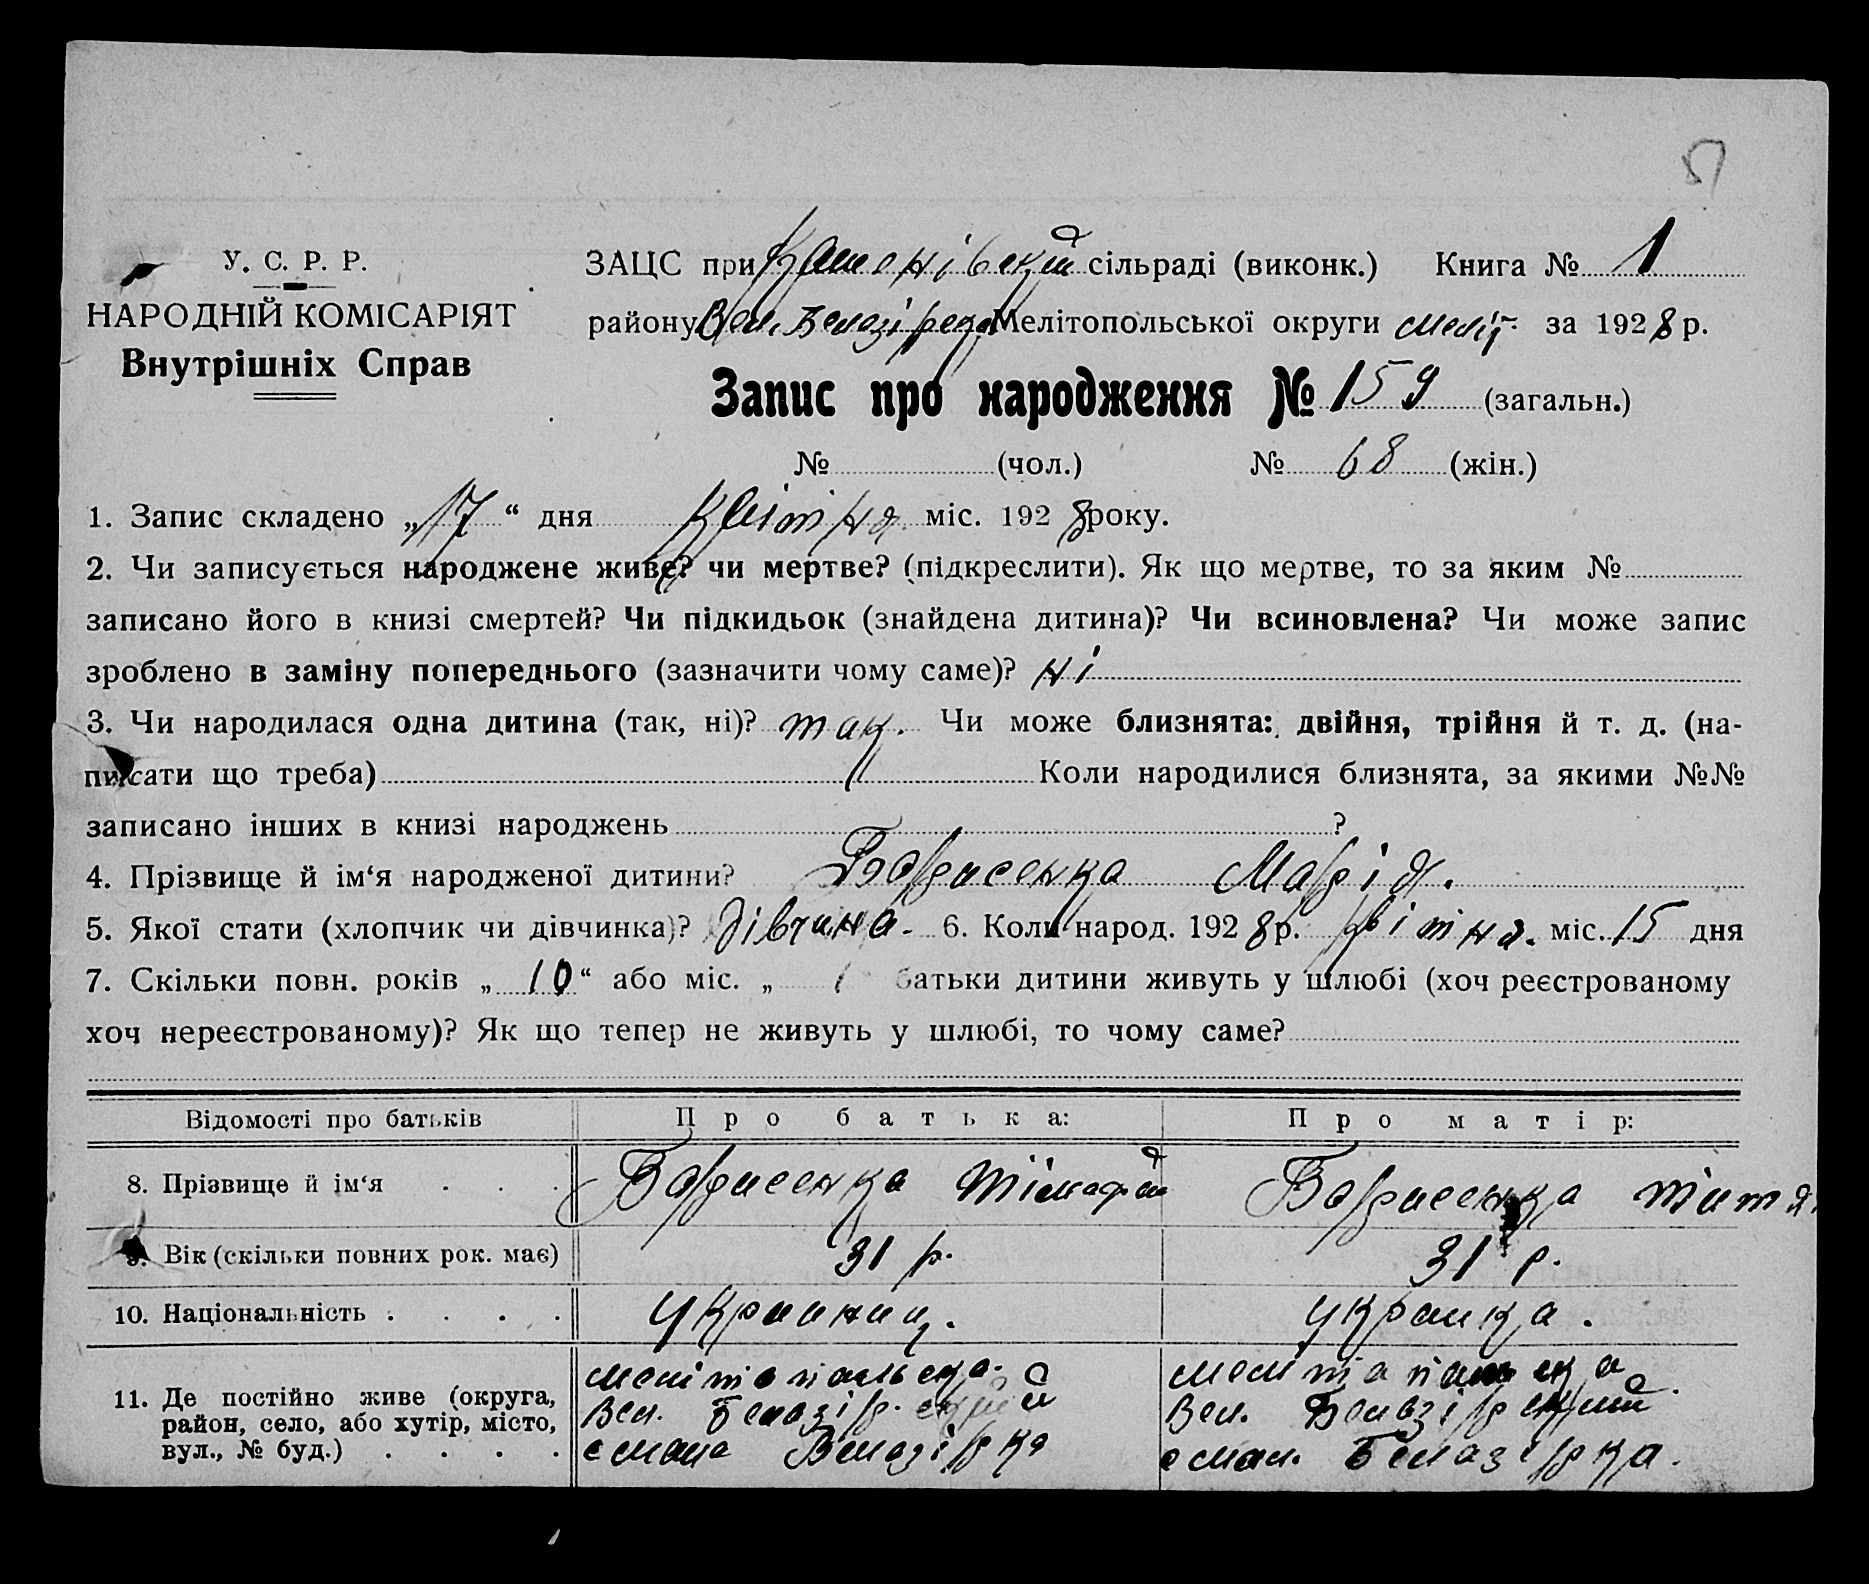 51
У. С. Р. Р.
НАРОДНІЙ КОМІСАРІЯТ
Внутрішніх Справ
ЗАЦС при сільраді (виконк.) Книга № 1
району Вел. Белозірська Мелітопольської округи Меліт. за 1928 р.
Запис про народження № 159 (загальн.)
№ (чол.) № 68 (жін.)
1. Запис складено „17“ дня Квітня міс. 1928 року.
2. Чи записується народжене живе? чи мертве? (підкреслити). Як що мертве, то за яким №
записано його в книзі смертей? Чи підкидьок (знайдена дитина)? Чи всиновлена? Чи може запис
зроблено в заміну попереднього (зазначити чому саме)? Ні
3. Чи народилася одна дитина (так, ні)? так. Чи може близнята: двійня, трійня й т. д. (на-
писати що треба) Коли народилися близнята, за якими №№
записано інших в книзі народжень ?
4. Прізвище й ім‘я народженої дитини? Борисенко Марія.
5. Якої стати (хлопчик чи дівчинка)? Дівчина. 6. Коли народ. 1928 р. квітня. міс. 15 дня
7. Скільки повн. років „10“ або міс. „ батьки дитини живуть у шлюбі (хоч реєстрованому
хоч нереєстрованому)? Як що тепер не живуть у шлюбі, то чому саме?
Відомості про батьків Про батька: Про матір:
8. Прізвище й ім‘я . . . Борисенко Тімофій Борисенко
9. Вік (скільки повних рок. має) 31 р. 31 р.
10. Національність . . . . Украинин. Украика.
11. Де постійно живе (округа, район, село, або хутір, місто, вул., № буд.) . . . .
Мелітопольска.
Вел. Белозір.ский
с мала Белозірка
Мелитопольска
Вел. Белозірский
с мал. Белозірка.